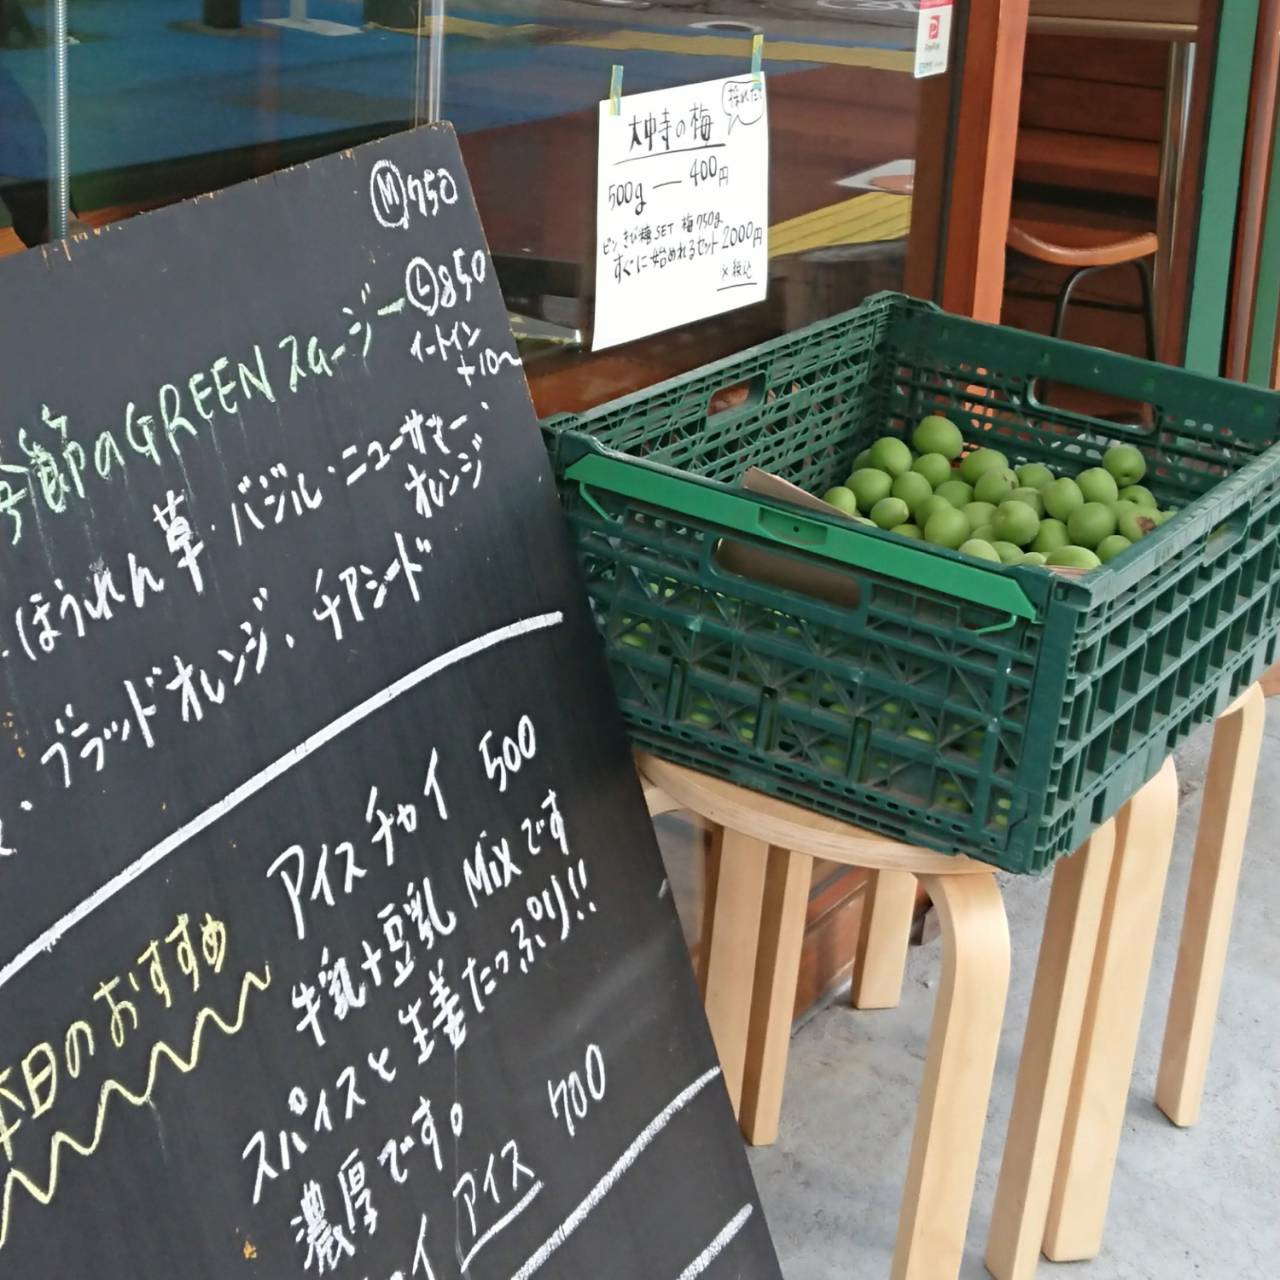 Ⓜ750
Ⓛ850
イートイン
+10〜
季節のGREENスムージー
ほうれん草・バジル・ニューサマー
オレンジ
ブラッドオレンジ、チアシード
アイスチャイ 500
牛乳+豆乳 Mixです
スパイスと生姜たっぷり!!
濃厚です。
本日のおすすめ
700
イ アイス
採れたて
大中寺の梅
500g — 400円
ビン きび糖 SET 梅750g
すぐに始めれるセット 2000円
※税込
PayPay